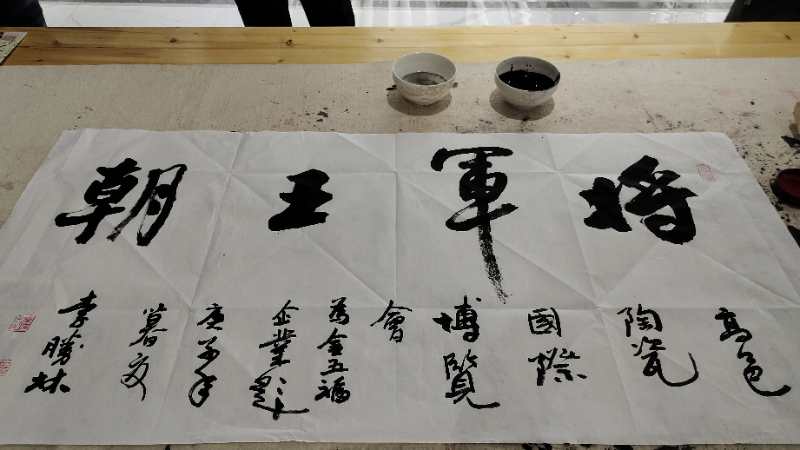 将軍王朝
高邑
陶瓷
國際
博覽
會
為金五福
企業題
庚子年
暮夏
李勝林